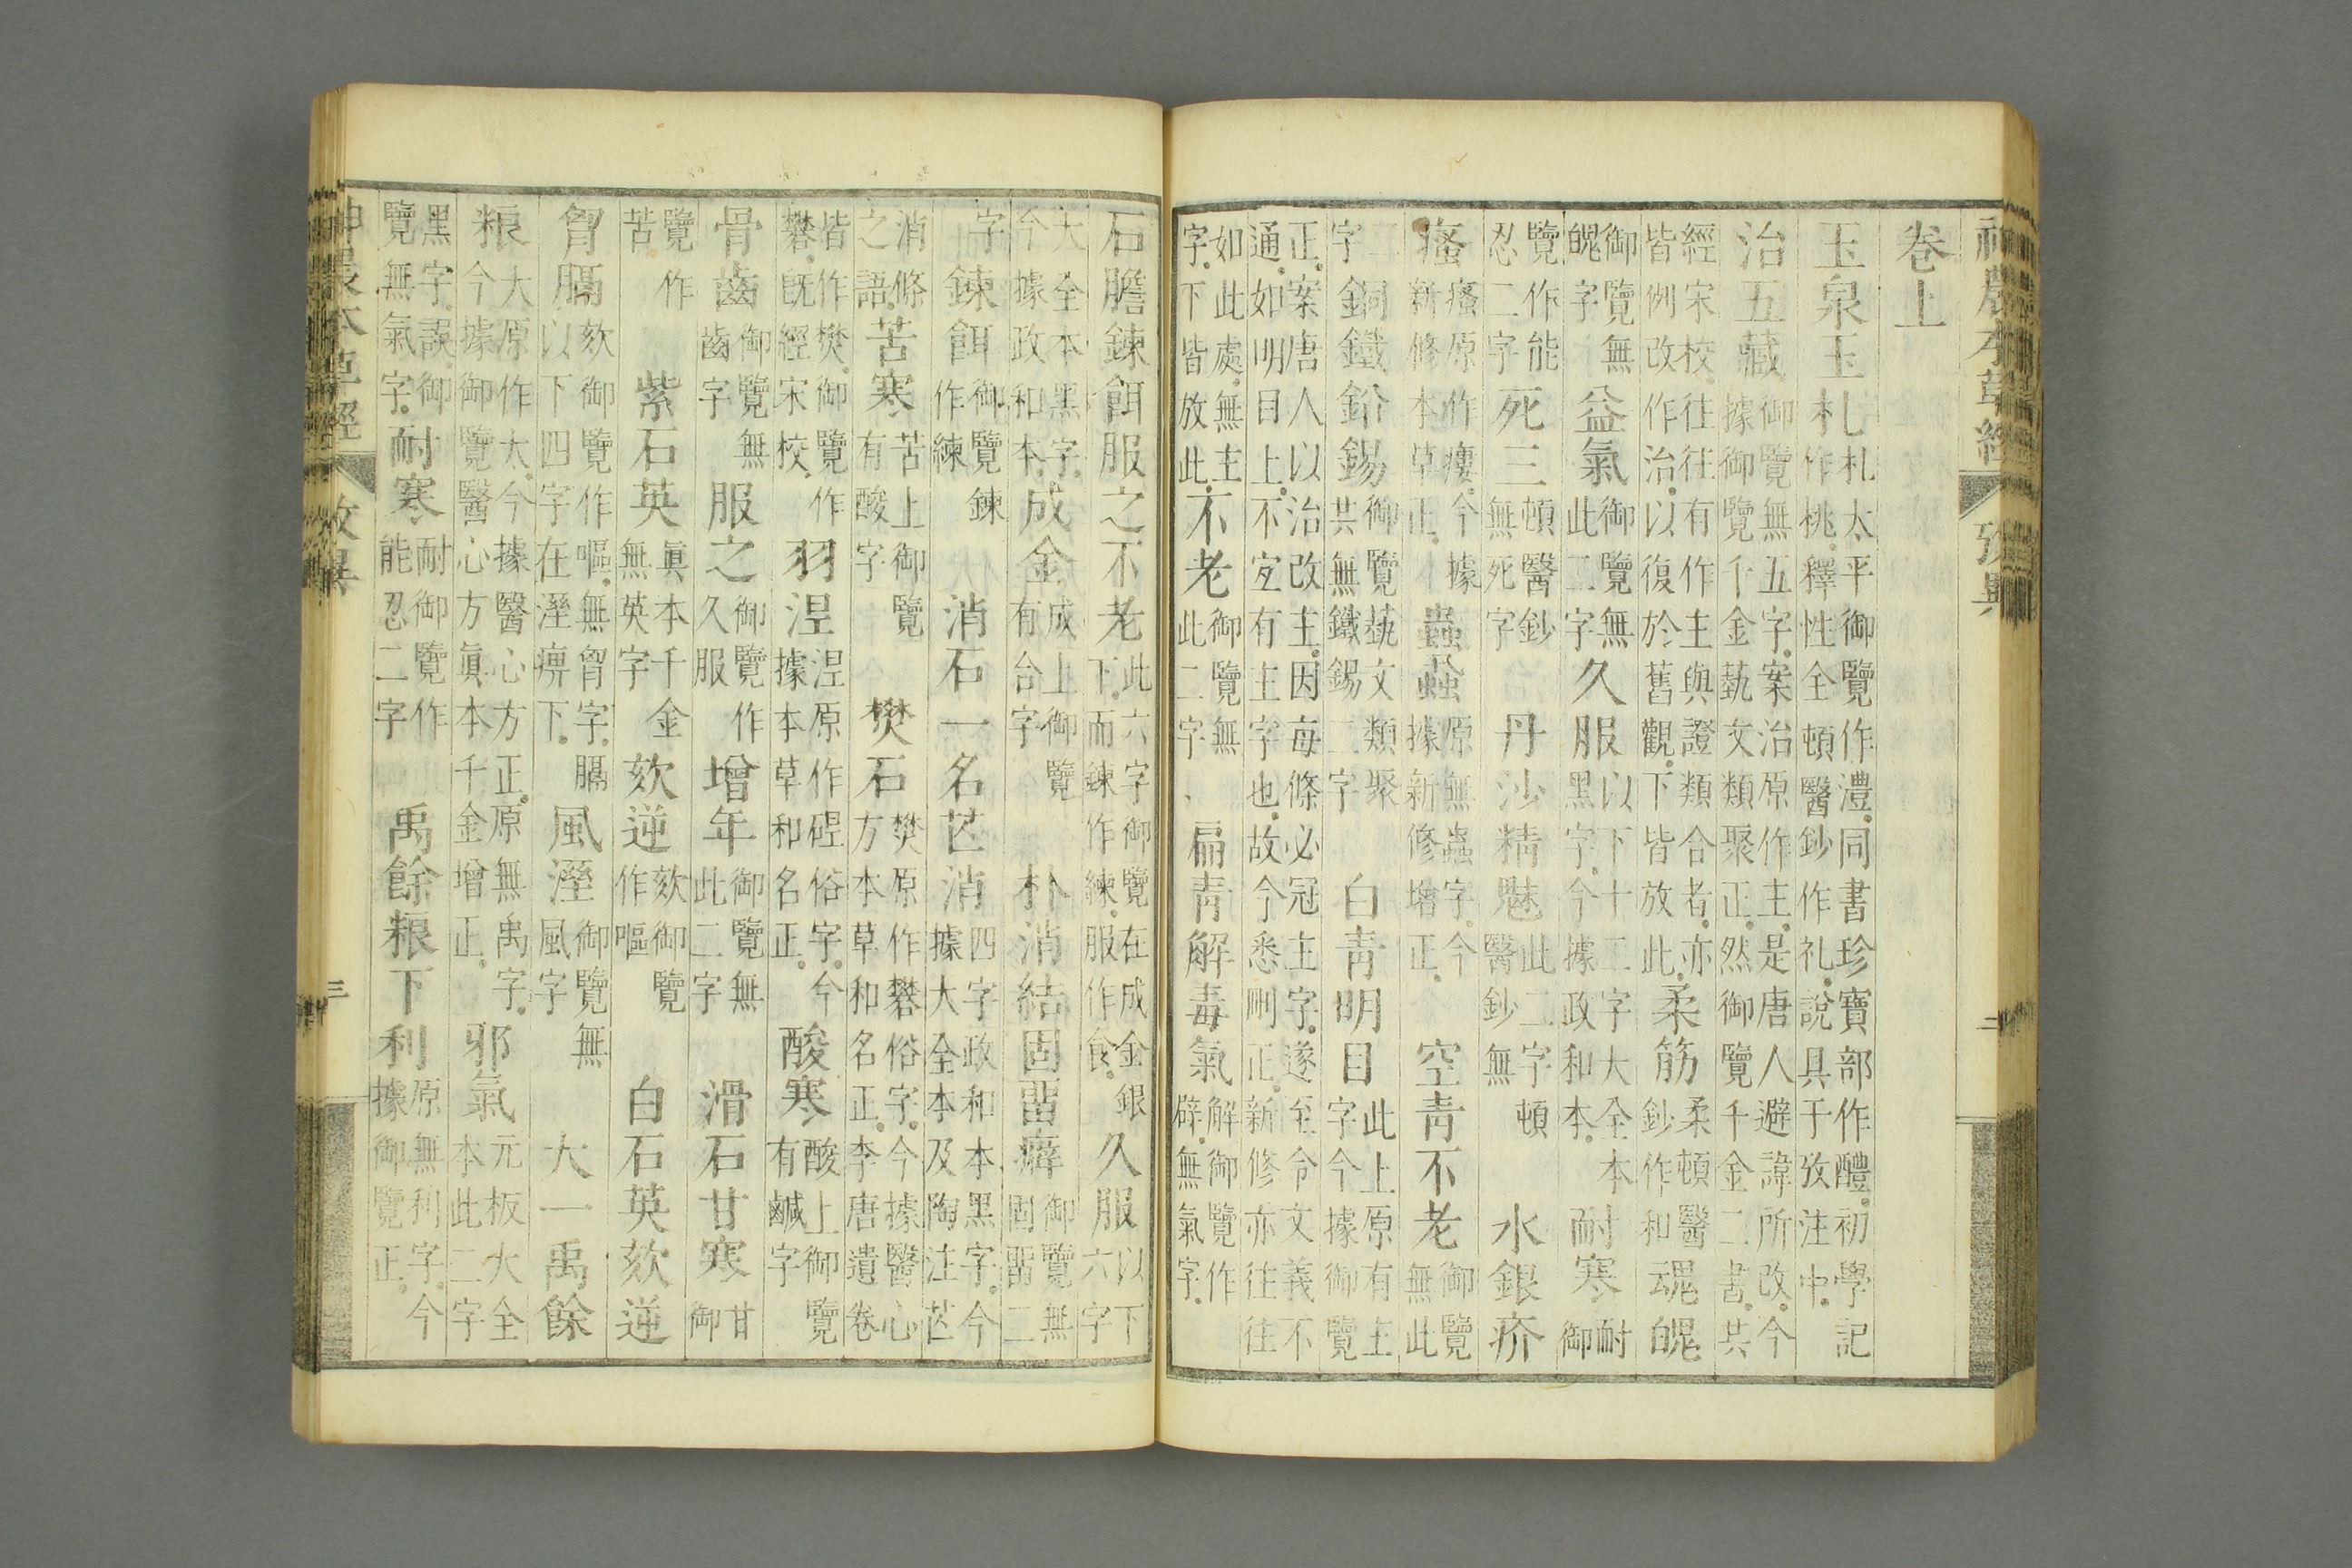 神農本草經 攷異 二
卷上
玉泉玉札 札太平御覽作澧。同書珍寶部作醴。初學記
作桃。釋性全頓醫鈔作礼。說具于攷注中。
治五藏 御覽無五字。案治原作主。是唐人避諱所改。今
據御覽千金藝文類聚正。然御覽千金二書。共
經宋校。往往有作主與證類合者。亦
皆例改作治。以復於舊觀。下皆放此。 柔筋 柔頓醫
鈔作和 魂魄
御覽無
魄字 益氣 御覽無
此二字 久服 以下十二字大全本
黑字。今據政和本。 耐寒 耐
御
覽作能
忍二字 死三 頓醫鈔
無死字 丹沙精魅 此二字頓
醫鈔無 水銀疥
瘙 瘙原作瘻。今據
新修本草正。 蟲蝨 原無蟲字。今
據新修增正。 空青不老 御覽
無此
二
字 銅鐵鉛錫 御覽藝文類聚
共無鐵錫二字 白青明目 此上原有主
字今據御覽
正。案唐人以治改主。因每條必冠主字。遂至令文義不
通。如明目上。不宜有主字也。故今悉刪正。新修亦往往
如此處。無主
字。下皆放此。 不老 御覽無
此二字 扁青解毒氣 解御覽作
辟。無氣字。
石膽鍊餌服之不老 此六字御覽在成金銀
下。而鍊作練。服作食。 久服 以下
六字
大全本黑字。
今據政和本。 成金 成上御覽
有合字 朴消結固留癖 御覽無
固留二
字 鍊餌 御覽鍊
作練 消石一名芒消 四字政和本黑字。今
據大全本及陶注芒
消條
之語。 苦寒 苦上御覽
有酸字 樊石 樊原作礬俗字。今據醫心
方本草和名正。李唐遺卷
皆作樊。御覽作
礬。既經宋校。 羽涅 涅原作䂼俗字。今
據本草和名正。 酸寒 酸上御覽
有鹹字
骨齒 御覽無
齒字 服之 御覽作
久服 增年 御覽無
此二字 滑石甘寒 甘
御
覽作
苦 紫石英 眞本千金
無英字 欬逆 欬御覽
作嘔 白石英欬逆
胷膈 欬御覽作嘔。無胷字。膈
以下四字在溼痹下。 風溼 御覽無
風字 大一禹餘
粮 大原作太。今據醫心方正。原無禹字。
今據御覽醫心方眞本千金增正。 邪氣 元板大全
本此二字
黑字。誤。御
覽無氣字。 耐寒 耐御覽作
能忍二字 禹餘粮下利 原無利字。今
據御覽正。
神農本草經 攷異 三